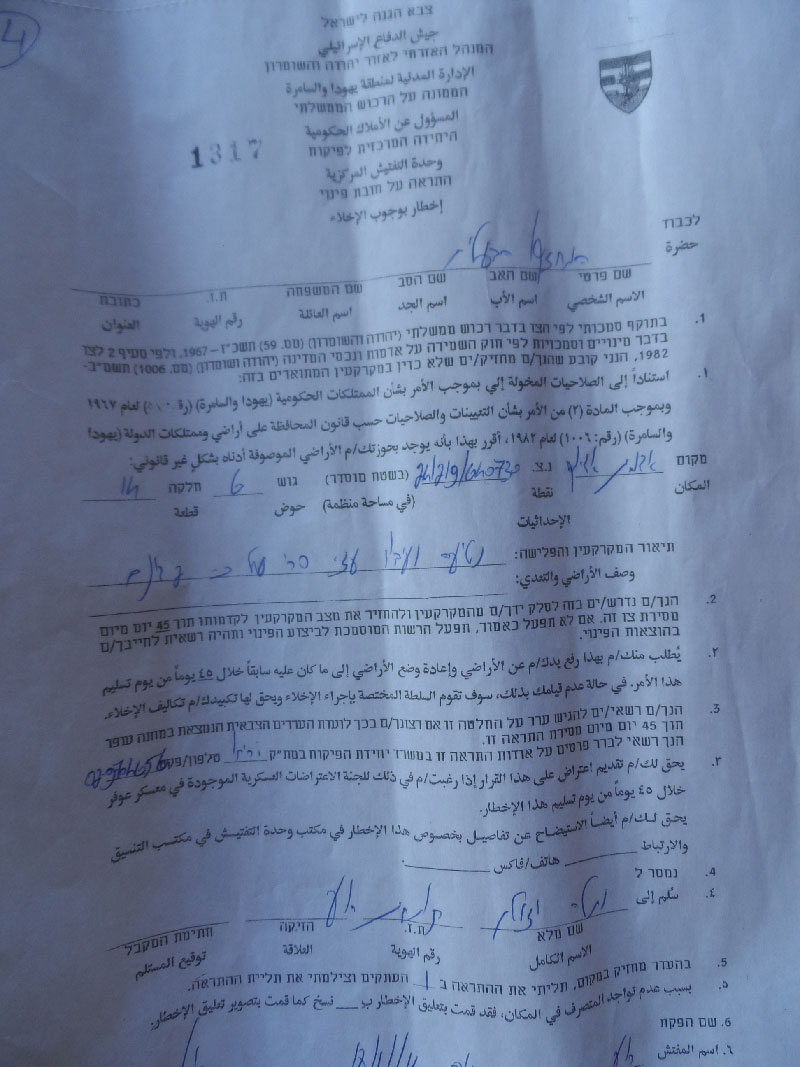 4
צבא הגנה לישראל
جيش الدفاع الإسرائيلي
המנהל האזרחי לאזור יהודה והשומרון
الإدارة المدنية لمنطقة يهودا والسامرة
הממונה על הרכוש הממשלתי
المسؤول عن الأملاك الحكومية
היחידה המרכזית לפיקוח
وحدة التفتيش المركزية
התראה על חובת פינוי
إخطار بوجوب الإخلاء
1317
לכבוד
حضرة
שם פרטי שם האב שם הסב שם המשפחה ת.ז. כתובת
الاسم الشخصي اسم الأب اسم الجد اسم العائلة رقم الهوية العنوان
1. בתוקף סמכותי לפי הצו בדבר רכוש ממשלתי (יהודה והשומרון) (מס. 59) תשכ"ז - 1967, ולפי סעיף 2 לצו
בדבר מינויים וסמכויות לפי חוק השמירה על אדמות ונכסי המדינה (יהודה ושומרון) (מס. 1006) תשמ"ב-
1982, הנני קובע שהנך/ם מחזיק/ים שלא כדין במקרקעין המתוארים בזה:
١. استناداً إلى الصلاحيات المخولة إلي بموجب الأمر بشأن الممتلكات الحكومية (يهودا والسامرة) لعام ١٩٦٧
وبموجب المادة (٢) من الأمر بشأن التعيينات والصلاحيات حسب قانون المحافظة على أراضي وممتلكات الدولة (يهودا
والسامرة) (رقم: ١٠٠٦) لعام ١٩٨٢، أقرر بهذا بأنه يوجد بحوزتك/م الأراضي الموصوفة أدناه بشكل غير قانوني:
מקום נ.צ. (בשטח מוסדר) גוש 6 חלקה
المكان نقطة (في مساحة منظمة) حوض قطعة
الإحداثيات
תיאור המקרקעין והפלישה:
وصف الأراضي والتعدي:
2. הנך/ם נדרש/ים בזה לסלק ידך/ם מהמקרקעין ולהחזיר את מצב המקרקעין לקדמותו תוך 45 יום מיום
מסירת צו זה. אם לא תפעל כאמור, תפעל הרשות המוסמכת לביצוע הפינוי ותהיה רשאית לחייבך/ם
בהוצאות הפינוי.
٢. يُطلب منك/م بهذا رفع يدك/م عن الأراضي وإعادة وضع الأراضي إلى ما كان عليه سابقاً خلال ٤٥ يوماً من يوم تسليم
هذا الأمر. في حالة عدم قيامك بذلك، سوف تقوم السلطة المختصة بإجراء الإخلاء ويحق لها تكبيدك/م تكاليف الإخلاء.
3. הנך/ם רשאי/ים להגיש ערר על החלטה זו אם רצונך/ם בכך לועדת העררים הצבאית הנמצאת במחנה עופר
תוך 45 יום מיום מסירת התראה זו.
הנך רשאי לברר פרטים על אודות התראה זו במשרד יחידת הפיקוח במת"ק טלפון/פקס
٣. يحق لك/م تقديم اعتراض على هذا القرار إذا رغبت/م في ذلك للجنة الاعتراضات العسكرية الموجودة في معسكر عوفر
خلال ٤٥ يوماً من يوم تسليم هذا الإخطار.
يحق لك/م أيضاً الاستيضاح عن تفاصيل بخصوص هذا الإخطار في مكتب وحدة التفتيش في مكتب التنسيق
والارتباط هاتف/فاكس
4. נמסר ל
٤. سُلم إلى
שם מלא ת.ז. הזיקה חתימת המקבל
الاسم الكامل رقم الهوية العلاقة توقيع المستلم
5. בהעדר מחזיק במקום, תליתי את ההתראה ב 1 העתקים וצילמתי את תליית ההתראה.
٥. بسبب عدم تواجد المتصرف في المكان، فقد قمت بتعليق الإخطار بـ نسخ كما قمت بتصوير تعليق الإخطار.
6. שם הפקח
٦. اسم المفتش